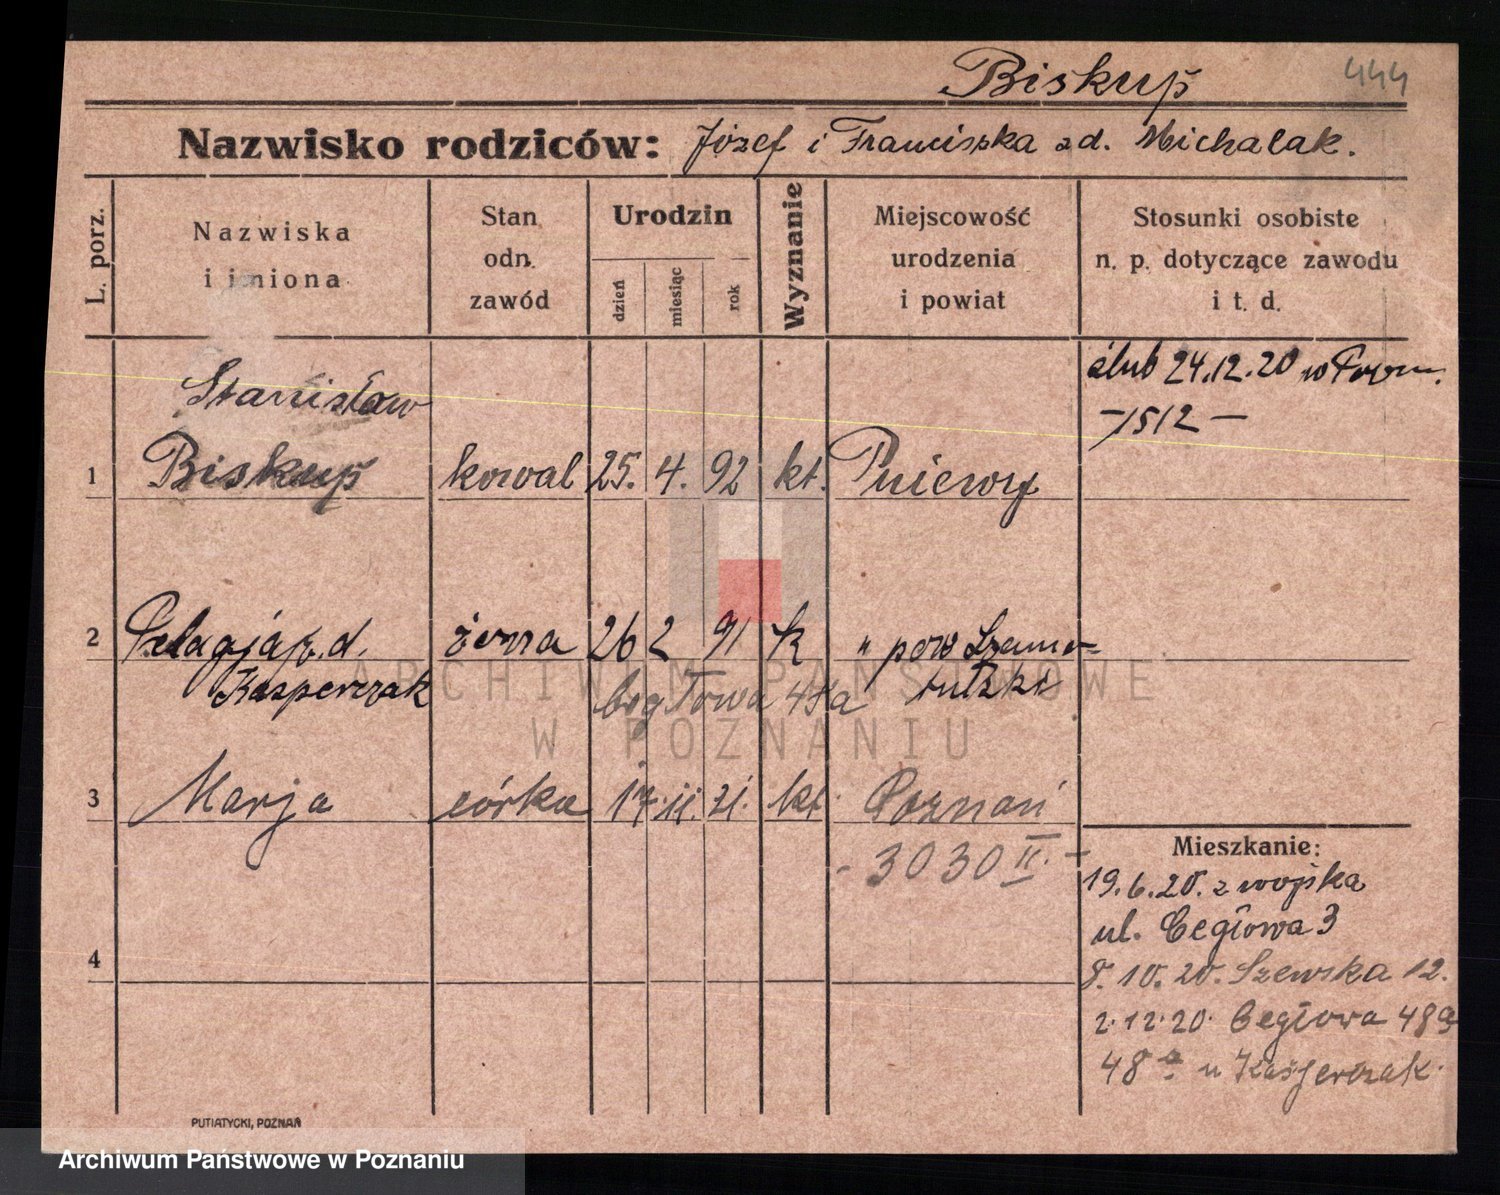 Biskup 444
Nazwisko rodziców: Józef i Franciszka zd. Michalak.
L. porz.
Nazwiska
i imiona
Stan
odn.
zawód
Urodzin
dzień
miesiąc
rok
Wyznanie
Miejscowość
urodzenia
i powiat
Stosunki osobiste
n. p. dotyczące zawodu
i t. d.
ślub 24.12.20 w Pozn.
-1512-
Stanisław
1 Biskup kowal 25. 4. 92 kt. Pniewy
2 Pelagja z. d. żona 26 2 91 k " pow Szamo=
Kasperczak Cegłowa 48a tulski
3 Marja córka 17. 11. 21. kt. Poznań
- 3030 II. -
4
Mieszkanie:
19.6.20. z wojska
ul. Cegłowa 3
8.10.20. Szewska 12.
2.12.20. Cegłowa 48a
48a u Kasperczak.
PUTIATYCKI, POZNAŃ
ARCHIWUM PAŃSTWOWE
W POZNANIU
Archiwum Państwowe w Poznaniu